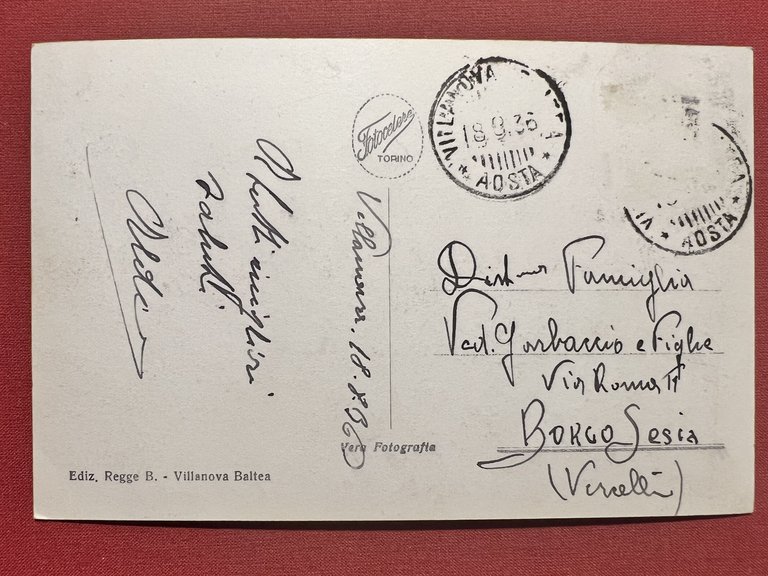 A tutti migliori
saluti
Villanova. 18.8.36
Fotocelere
TORINO
VILLANOVA BALTEA
18.8.36
AOSTA
AOSTA
Dist.ma Famiglia
Ved. Gorbaccio e Figlie
Via Roma
BORGO Sesia
(Vercelli)
Vera Fotografia
Ediz. Regge B. - Villanova Baltea